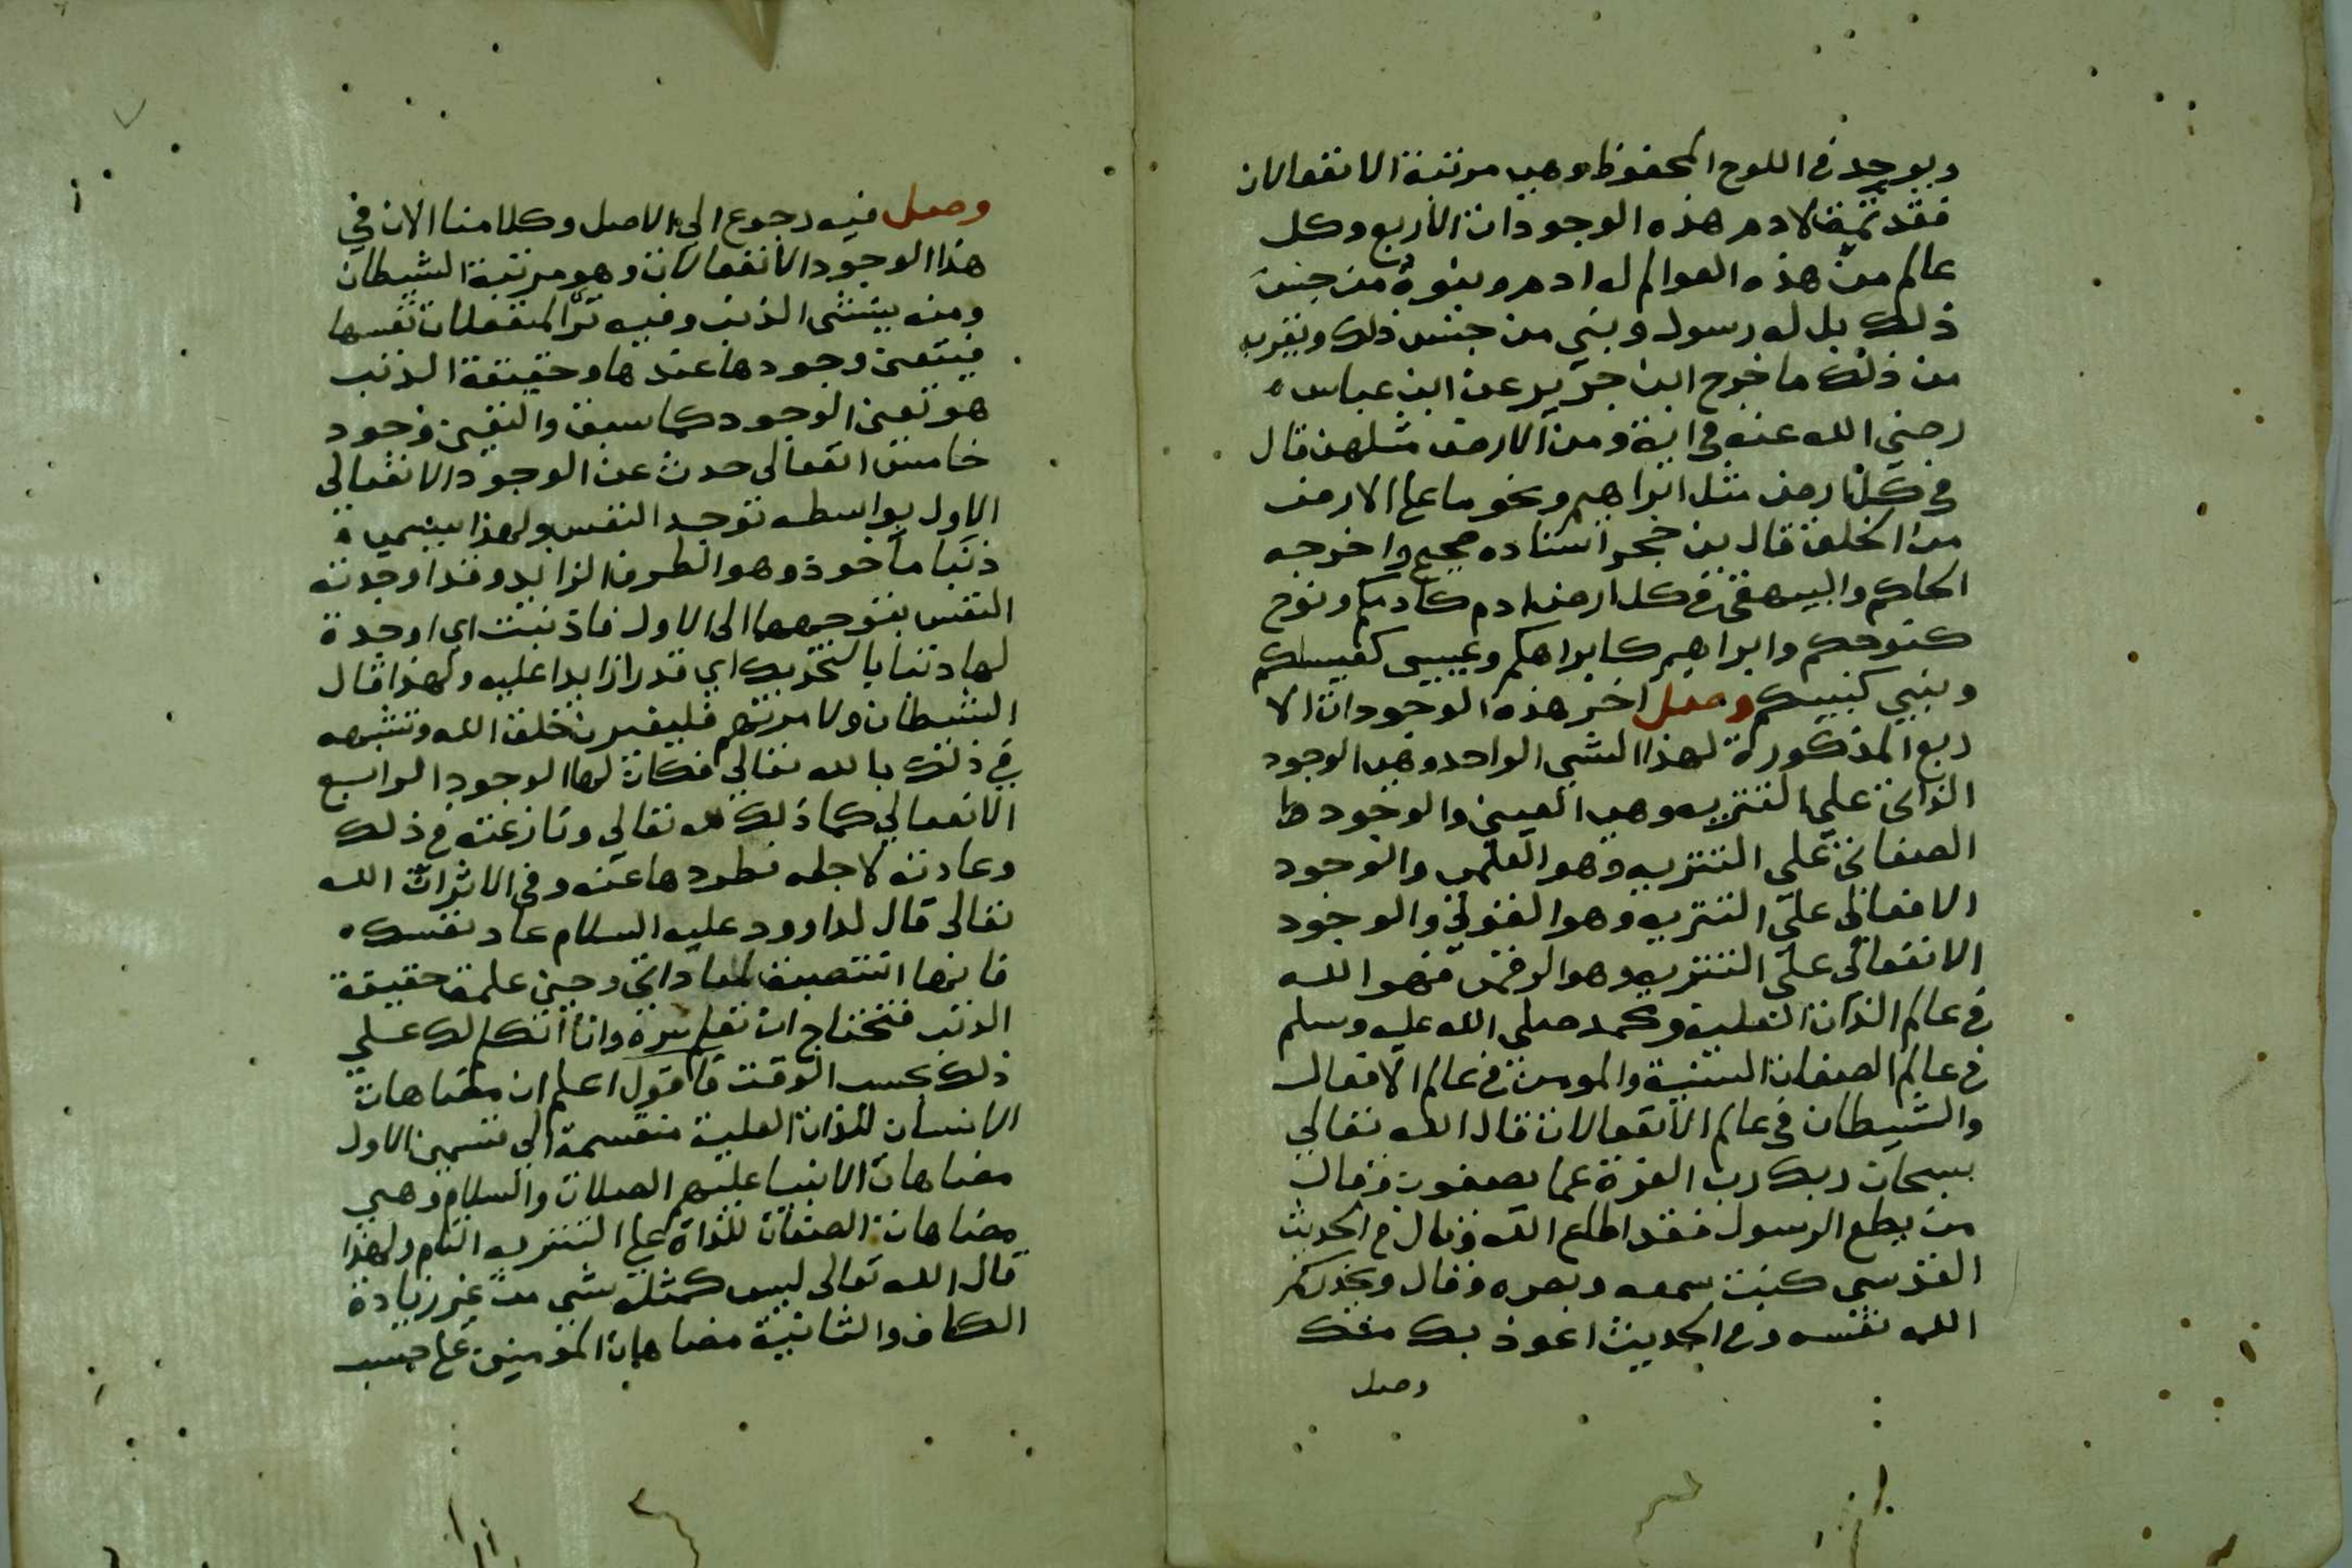 ويوجد في اللوح المحفوظ وهي مرتبة الانفعالات
فقد تمت لادم هذه الوجودات الاربع وكل
عالم من هذه العوالم له ادم وبنوه من جنس
ذلك بل له رسول ونبي من جنس ذلك ويقرب
من ذلك ما خرج ابن جرير عن ابن عباس
رضي الله عنه في اية ومن الارض مثلهن قال
في كل ارض مثل ابراهيم ونحو ما على الارض
من الخلق قال بن حجر اسناده صحيح واخرجه
الحاكم والبيهقي في كل ارض ادم كادمكم ونوح
كنوحكم وابراهيم كابراهكم وعيسى كعيسكم
ونبي كنبيكم وصل اخر هذه الوجودات الا
ربع المذكورة لهذا الشي الواحد وهي الوجود
الذاتي على التنزيه وهي العيني والوجود
الصفاتي على التنزيه وهو العلمي والوجود
الافعالي على التنزيه وهو القولي والوجود
الانفعالي على التنزيه وهو الرقمي فهو الله
في عالم الذات العلية ومحمد صلى الله عليه وسلم
في عالم الصفات السنية والمومن في عالم الافعال
والشيطان في عالم الانفعالات قال الله تعالي
سبحان ربك رب العزة عما يصفون وقال
من يطع الرسول فقد اطاع الله وقال في الحديث
القدسي كنت سمعه وبصره وقال ويحذركم
الله نفسه وفي الحديث اعوذ بك منك
وصل
وصل فيه رجوع الي الاصل وكلامنا الان في
هذا الوجود الانفعالات وهو مرتبة الشيطان
ومنه ينشى الذنب وفيه ترا المنفعلات نفسها
فيتعين وجودها عندها وحقيقة الذنب
هو تعين الوجود كما سبق والتعين وجود
خامس انفعالى حدث عن الوجود الانفعالي
الاول بواسطه توجه النفس ولهذا يسمي
ذنبا مأخوذ وهو الطرف الزايد وقد اوجدته
النفس بتوجهها الى الاول فاذنبت اي اوجدة
لها ذنبا بالتحريك اي قدرا زايدا عليه ولهذا قال
الشيطان ولامرنهم فليغيرن خلق الله وتشبهه
في ذلك بالله تعالي فكان لها الوجود الرابع
الانفعالي كما ذلك لله تعالي ونازعته في ذلك
وعادته لاجله فطردها عنه وفي الاثر ان الله
تعالى قال لداوود عليه السلام عاد نفسك
فانها انتصبة لمعاداتي وحين علمة حقيقة
الذنب فتحتاج ان تعلم سره وانا اتكلم لك علي
ذلك بحسب الوقت فأقول اعلم ان مضاهات
الانسان للذات العلية منقسمة الي قسمين الاول
مضاهات الانبيا عليهم الصلات والسلام وهي
مضاهات الصفات للذات على التنزيه التام ولهذا
قال الله تعالى ليس كمثله شي من غير زيادة
الكاف والثانية مضاهات المؤمنين على حسب